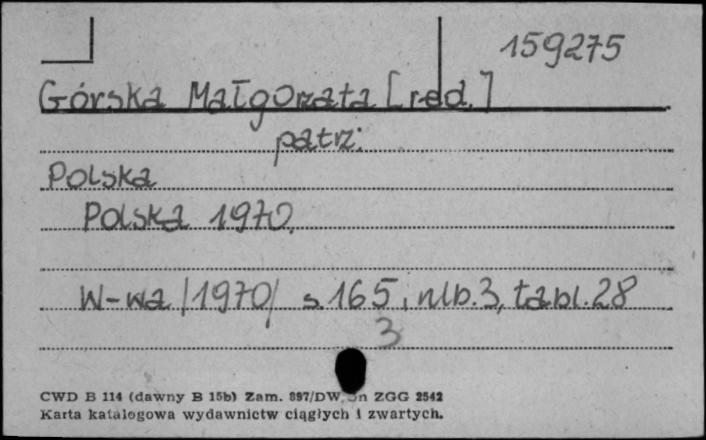 159275
Górska Małgorzata [red.]
patrz:
Polska
Polska 1970.
W-wa /1970/ s. 165, nlb. 3, tabl. 28
3
CWD B 114 (dawny B 15b) Zam. 897/DW. ZGG 2542
Karta katalogowa wydawnictw ciągłych i zwartych.